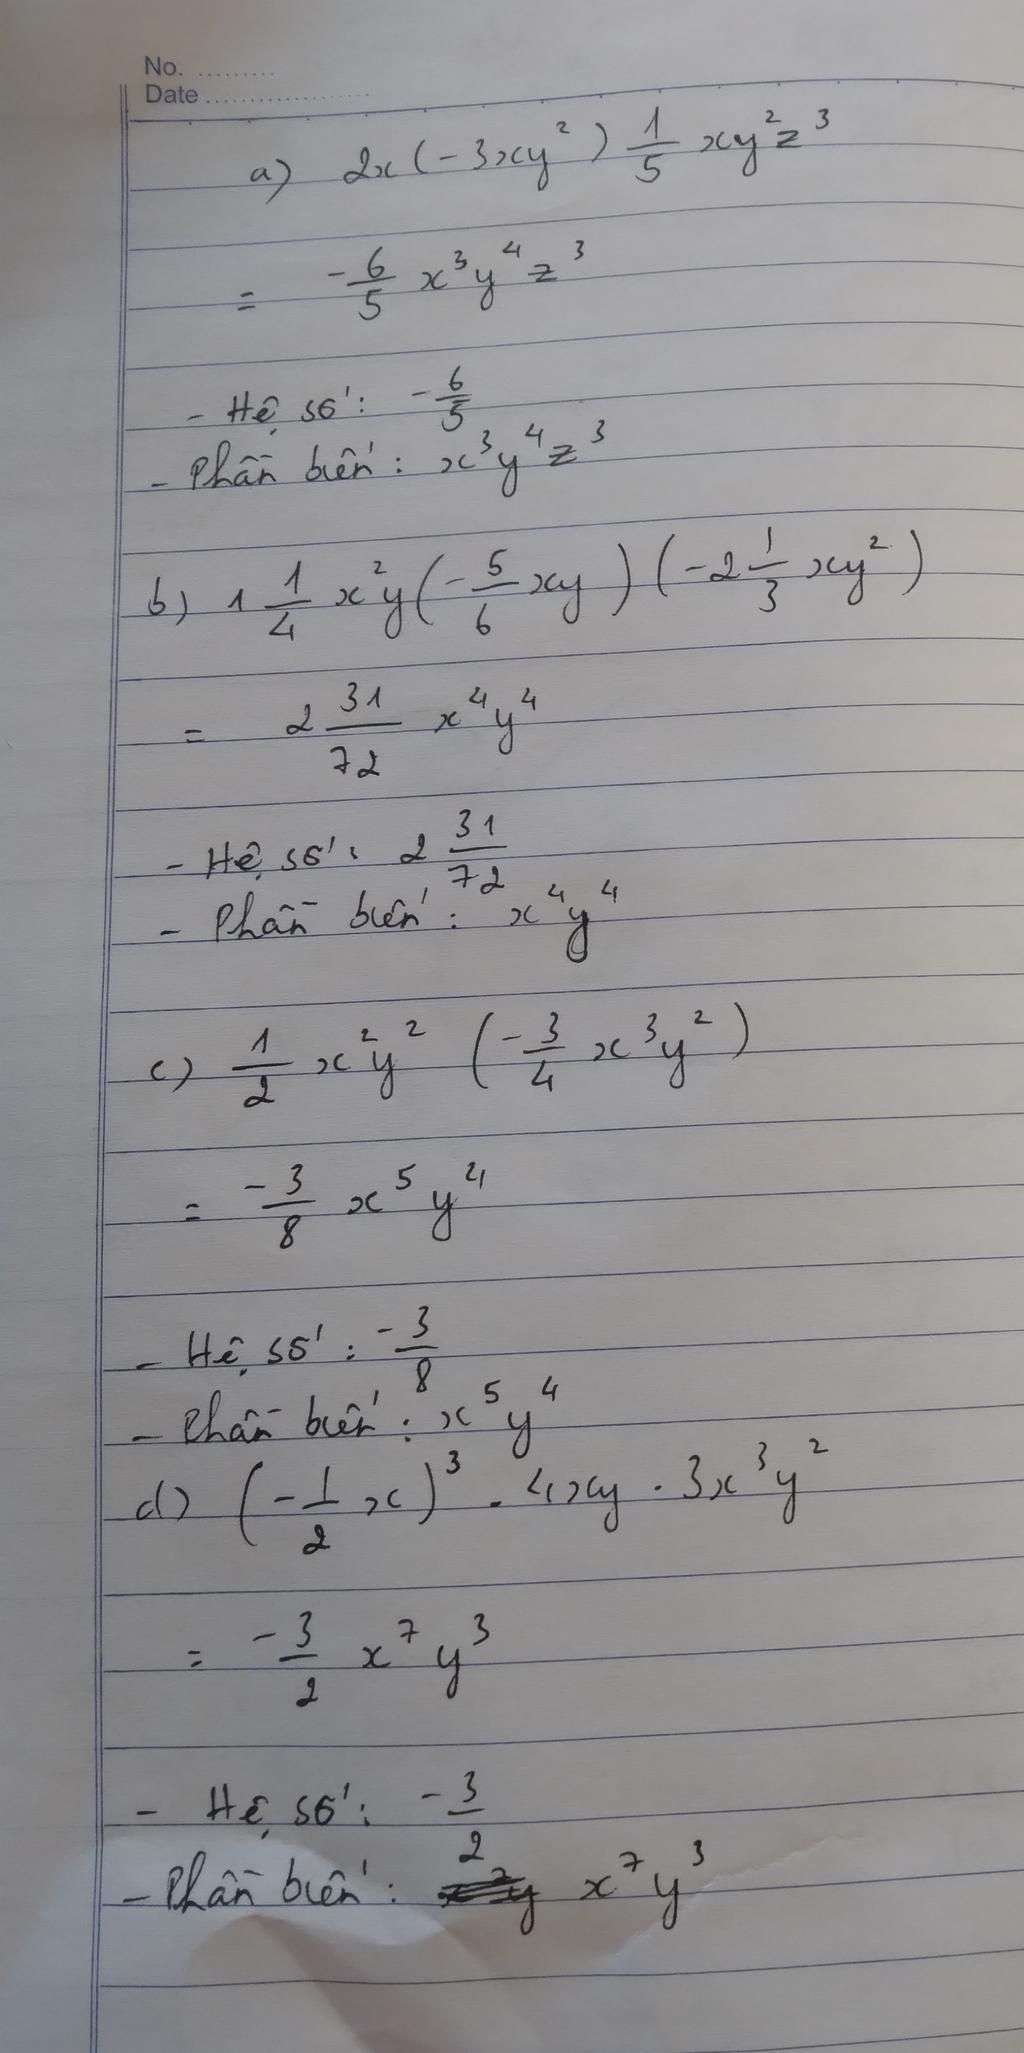 No. .........
Date ..................
a) 2x(-3xy²) 1/5 xy²z³
= -6/5 x³y⁴z³
- Hệ số: -6/5
- Phần biến: x³y⁴z³
b) 1 1/4 x²y(-5/6 xy)(-2 1/3 xy²)
= 2 31/72 x⁴y⁴
- Hệ số: 2 31/72
- Phần biến: x⁴y⁴
c) 1/2 x²y² (-3/4 x³y²)
= -3/8 x⁵y⁴
- Hệ số: -3/8
- Phần biến: x⁵y⁴
d) (-1/2 x)³ . 4xy . 3x³y²
= -3/2 x⁷y³
- Hệ số: -3/2
- Phần biến: x⁷y³